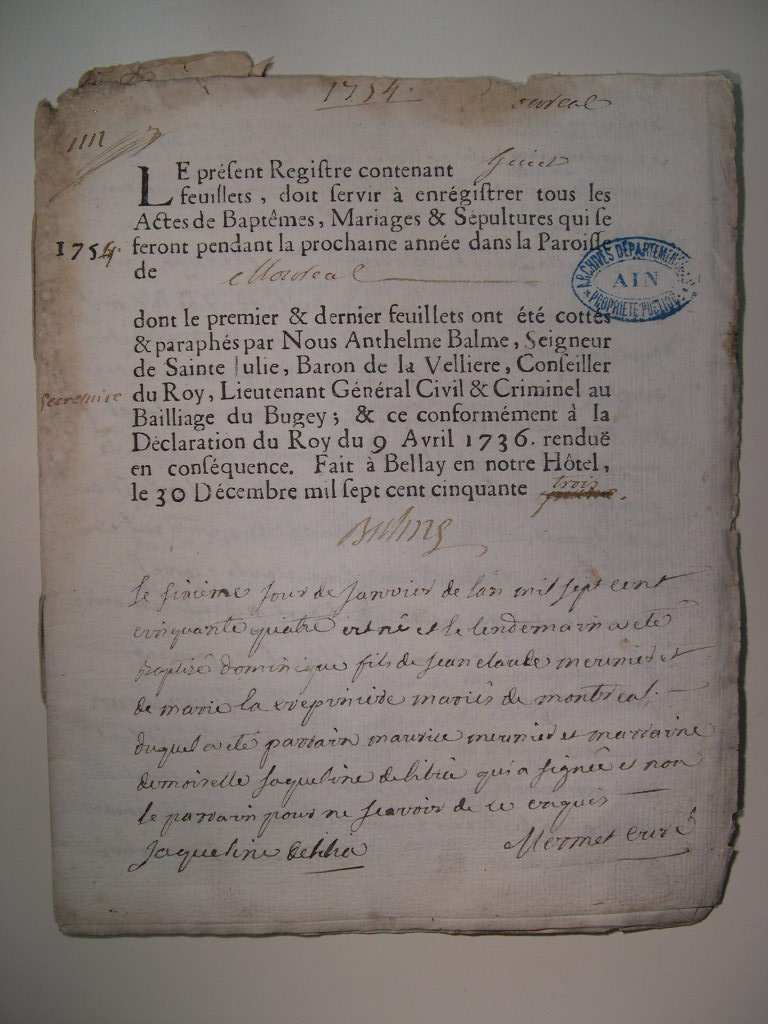 1754.
LE présent Registre contenant huict
feuillets, doit servir à enrégistrer tous les
Actes de Baptêmes, Mariages & Sépultures qui se
1754. feront pendant la prochaine année dans la Paroisse
de
ARCHIVES DÉPARTEMEN
AIN
PROPRIÉTÉ PUBLIQUE
dont le premier & dernier feuillets ont été cottés
& paraphés par Nous Anthelme Balme, Seigneur
de Sainte Julie, Baron de la Velliere, Conseiller
Secretaire du Roy, Lieutenant Général Civil & Criminel au
Bailliage du Bugey; & ce conformément à la
Déclaration du Roy du 9 Avril 1736. renduë
en conséquence. Fait à Bellay en notre Hôtel,
le 30 Décembre mil sept cent cinquante trois.
Balme
le sixième jour de janvier de lan mil sept cent
cinquante quatre est né et le lendemain a eté
baptisé dominique fils de jean claude meunier et
de marie la mariés de montreal.
duquel a eté parrain maurice meunier et marraine
demoiselle jaqueline delilia qui a signée et non
le parrain pour ne scavoir de ce enquis
jaqueline delilia Mermet curé